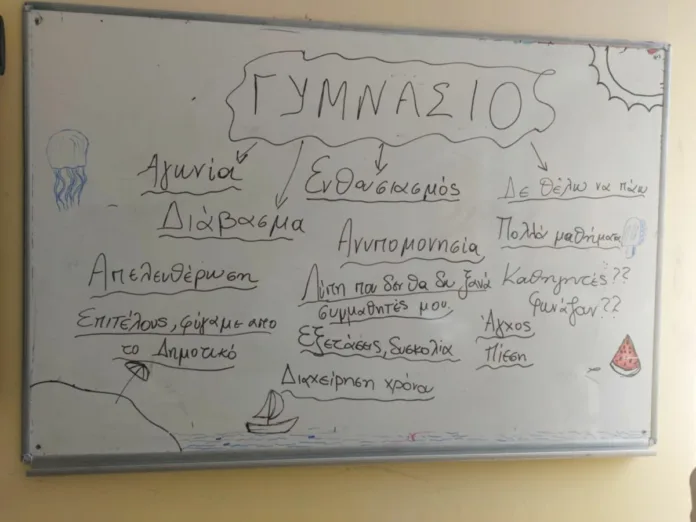 ΓΥΜΝΑΣΙΟ
Αγωνία
Ενθουσιασμός
Δε θέλω να πάω
Διάβασμα
Ανυπομονησία
Πολλά μαθήματα
Απελευθέρωση
Λύπη που δεν θα δω ξανά
συμμαθητές μου
Καθηγητές??
φωνάζουν??
Επιτέλους, φύγαμε απο
το Δημοτικό
Εξετάσεις, δυσκολία
Άγχος
Πίεση
Διαχείρηση χρόνου